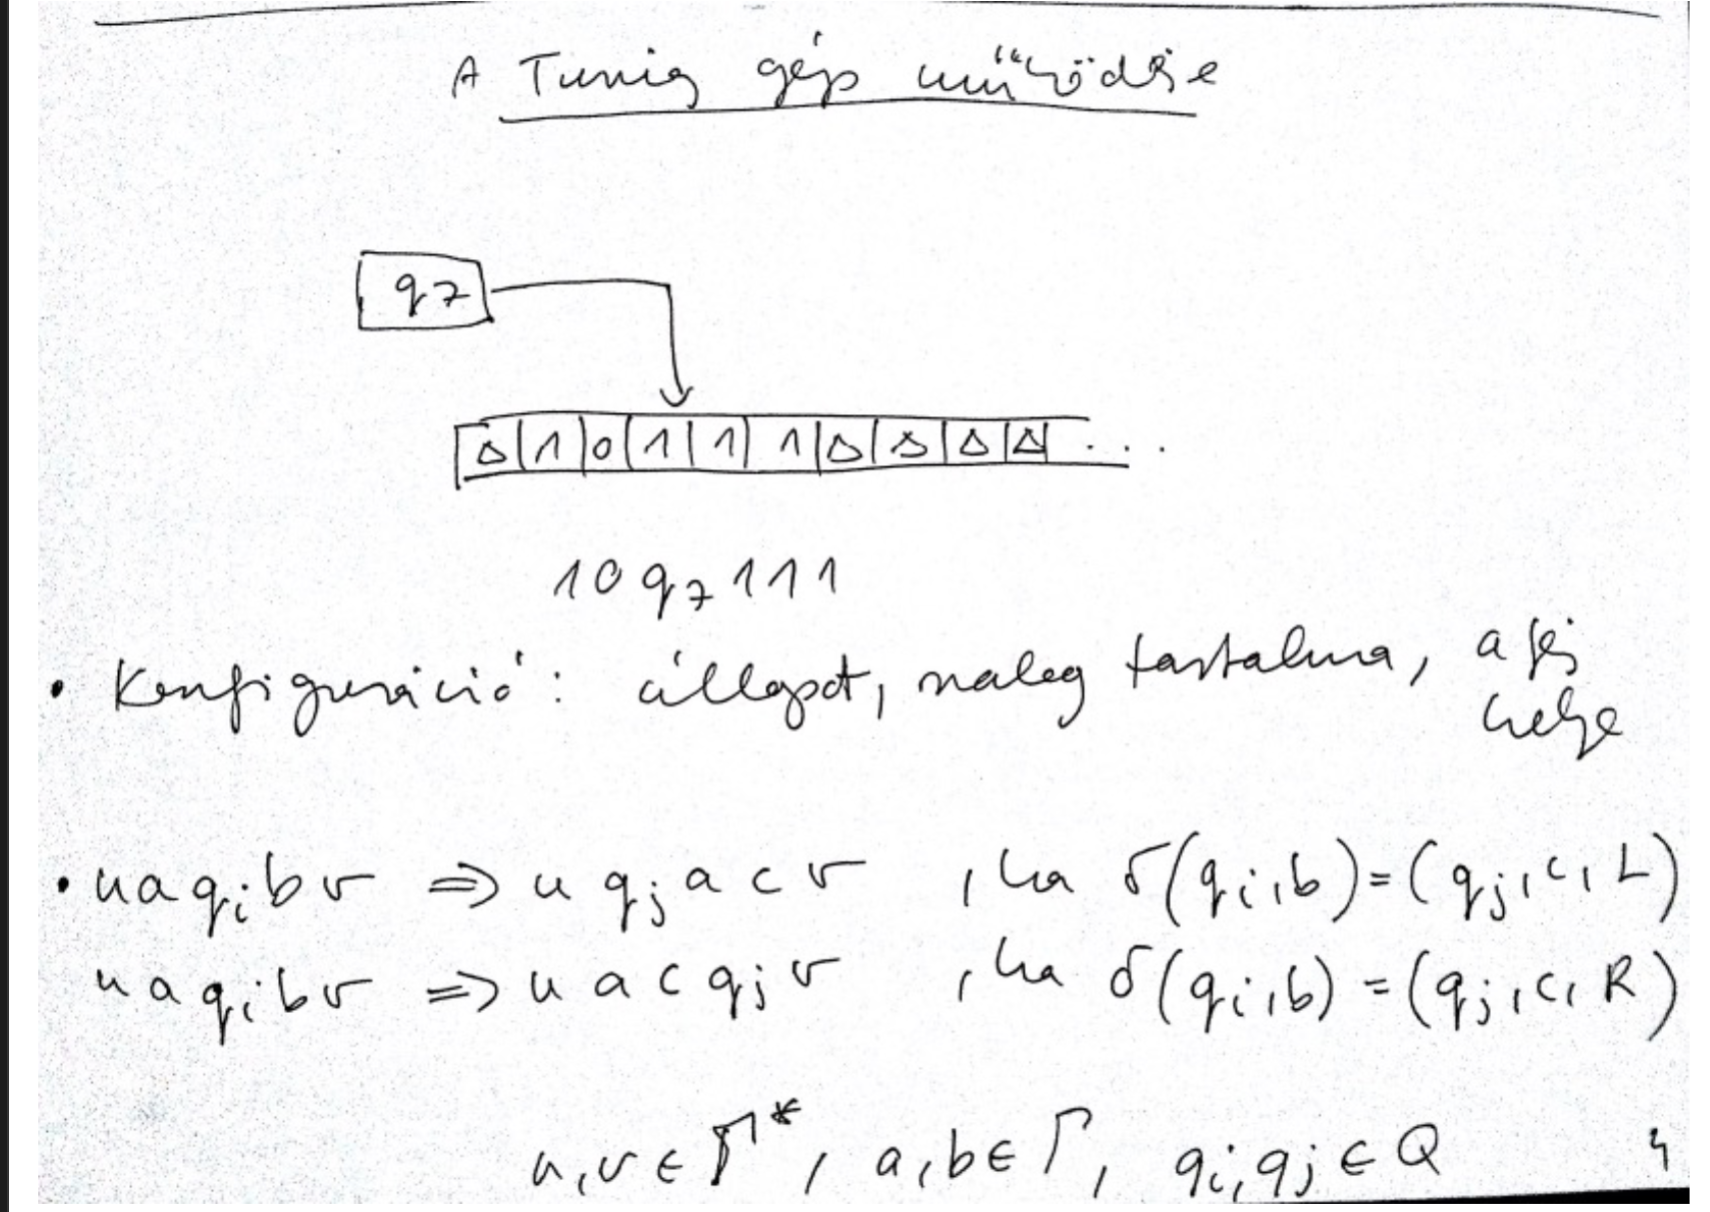 A Turing gép működése
q7
Δ|1|0|1|1|1|Δ|Δ|Δ|Δ| ...
10q₇111
• Konfiguráció: állapot, szalag tartalma, a fej
helye
• uaqᵢbv ⇒ uqⱼacv , ha δ(qᵢ,b)=(qⱼ,c,L)
uaqᵢbv ⇒ uacqⱼv , ha δ(qᵢ,b)=(qⱼ,c,R)
u,v∈Γ*, a,b∈Γ, qᵢ,qⱼ∈Q
4